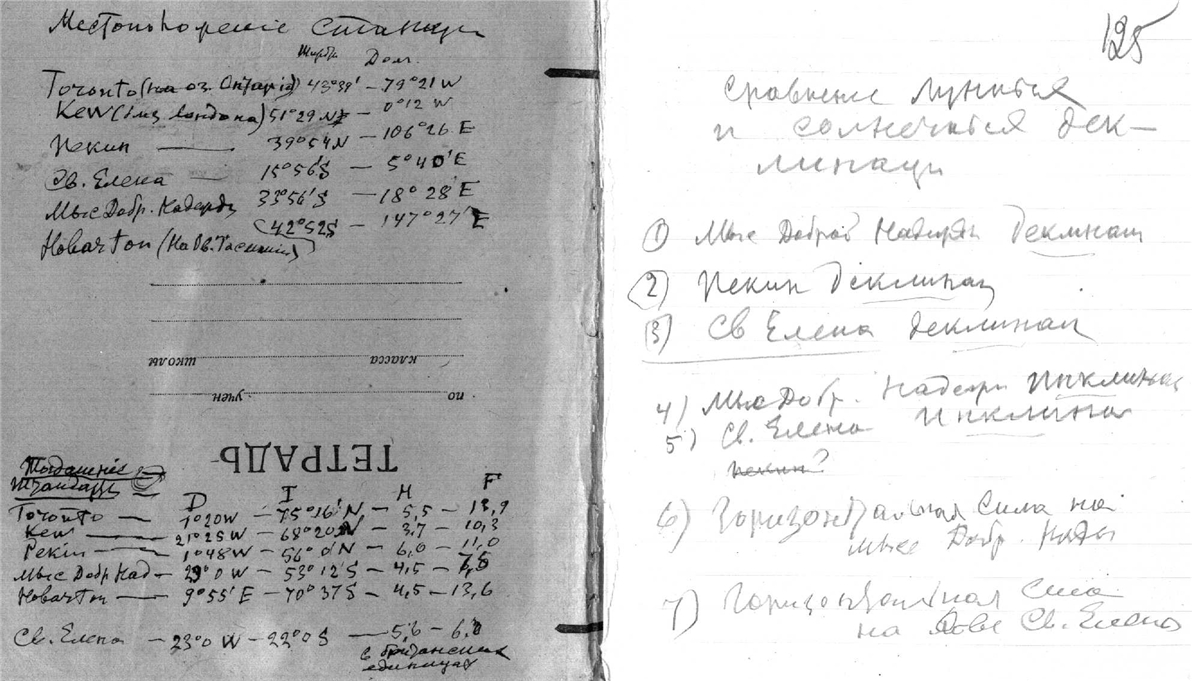 Местоположение Станци
Шир Дол.
Торонто (на оз. Онтаріо) 43°39' — 79°21 W
Kew (близ Лондона) 51°29 N — 0°12 W
Пекин — 39°54 N — 106°26 E
Св. Елена — 15°56'S — 5°40'E
Мыс Добр. Надежды 33°56'S — 18°28'E
Новартон (на Тасмании) (42°52S — 147°27'E
школы класса
учен по
ТЕТРАДЬ
D I H F
Торонто — 1°20W — 75°16'N — 5,5 — 13,9
Kew — 21°25W — 68°20N — 3,7 — 10,3
Рекін — 1°48W — 56°0N — 6,0 — 11,0
Мыс Добр Над — 29°0 W — 53°12'S — 4,5 — 7,5
Новартон — 9°55'E — 70°37S — 4,5 — 13,6
Св. Елена — 23°0 W — 22°0S — 5,6 — 6,0
в британских
единицах
125
Сравнение лунных
и солнечных дек-
линаци
① Мыс Доброй Надежды деклинац
② Пекин деклинац
③ Св Елена деклинац
4) Мыс Добр. Надежды Инклинац
5) Св. Елена Инклина
Пекин?
6) Горизонтальная Сила на
мысе Добр. Нады
7) Горизонтальная Сила
на о-ве Св. Елена